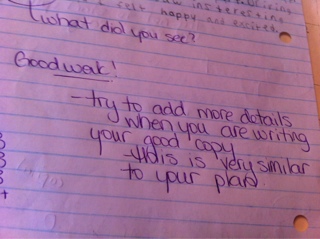 interesting
I felt happy and excited.
What did you see?
Good work!
-try to add more details
when you are writing
your good copy
-this is very similar
to your plan.